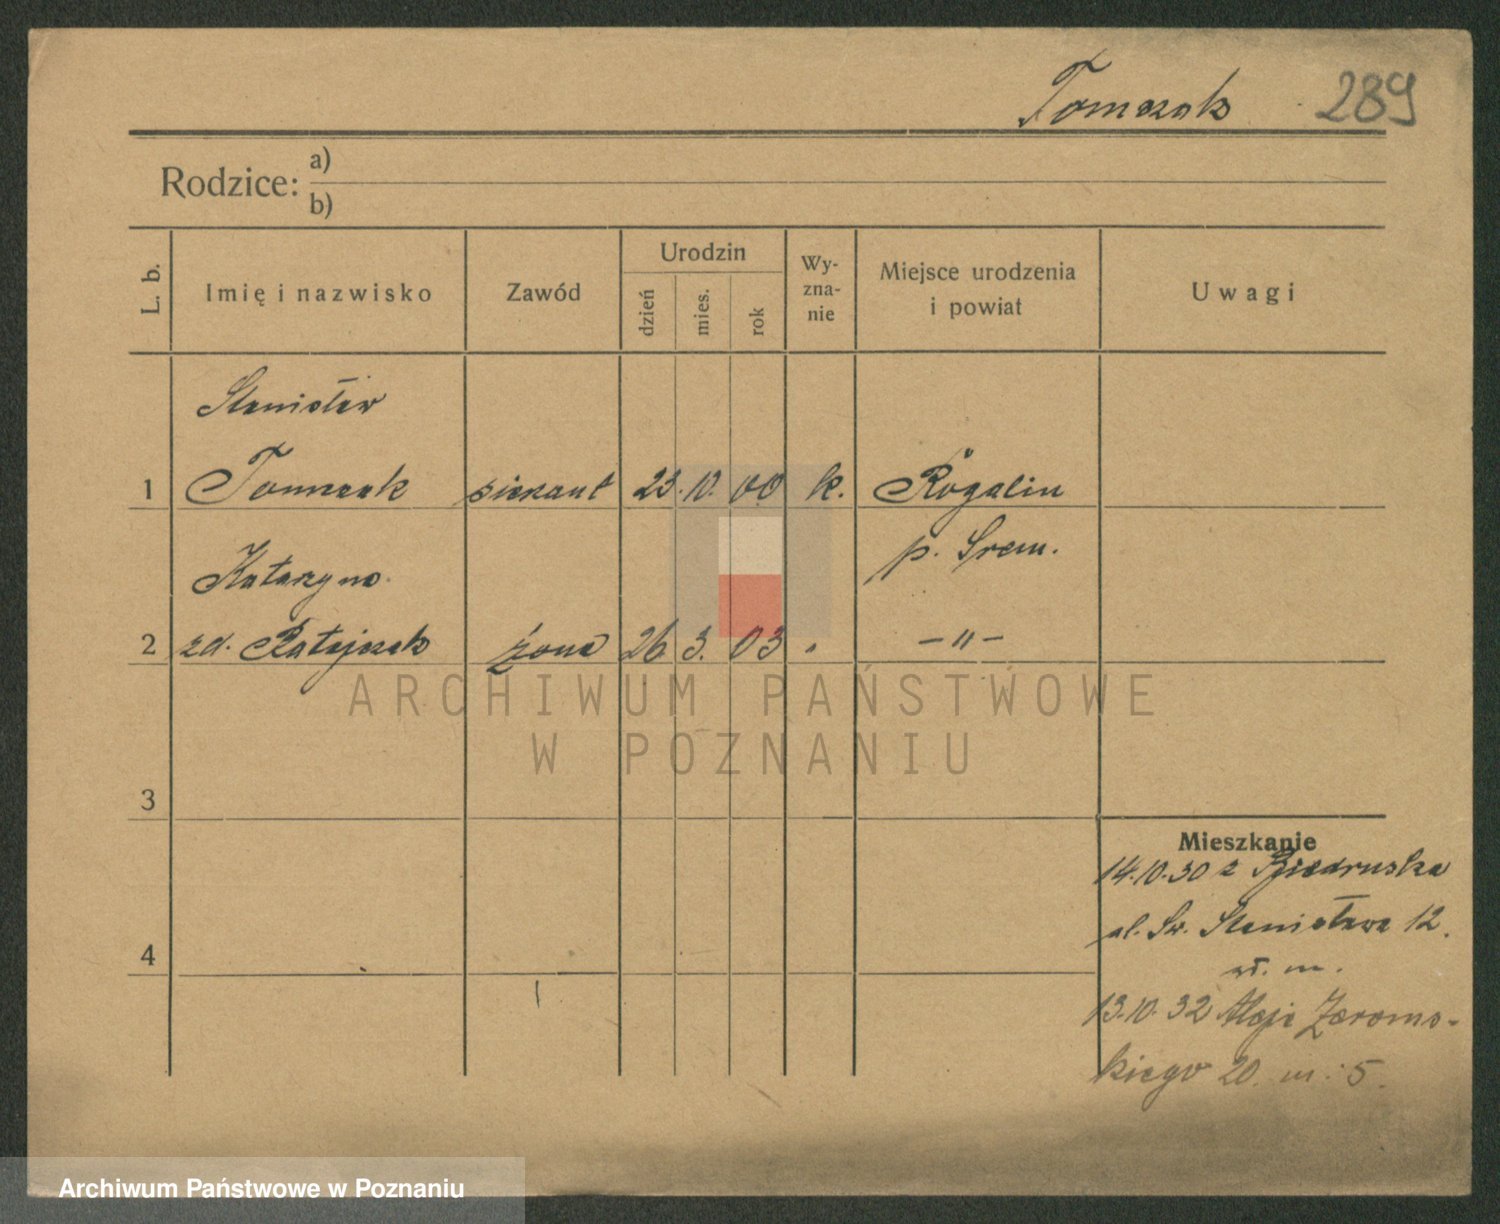 Tomczak 289
Rodzice: a)
b)
L. b.
Imię i nazwisko
Zawód
Urodzin
dzień
mies.
rok
Wy-
zna-
nie
Miejsce urodzenia
i powiat
Uwagi
Stanisław
1 Tomczak sierżant 23. 10. 00 k. Rogalin
p. Śrem.
Katarzyna
2 zd. Ratajczak żona 26 3. 03 " – " –
3
4
Mieszkanie
14.10.30 z Biedruska
ul. Św. Stanisława 12.
wł. m.
13.10.32 Aleje Żeroms-
kiego 20 m. 5.
ARCHIWUM PAŃSTWOWE
W POZNANIU
Archiwum Państwowe w Poznaniu